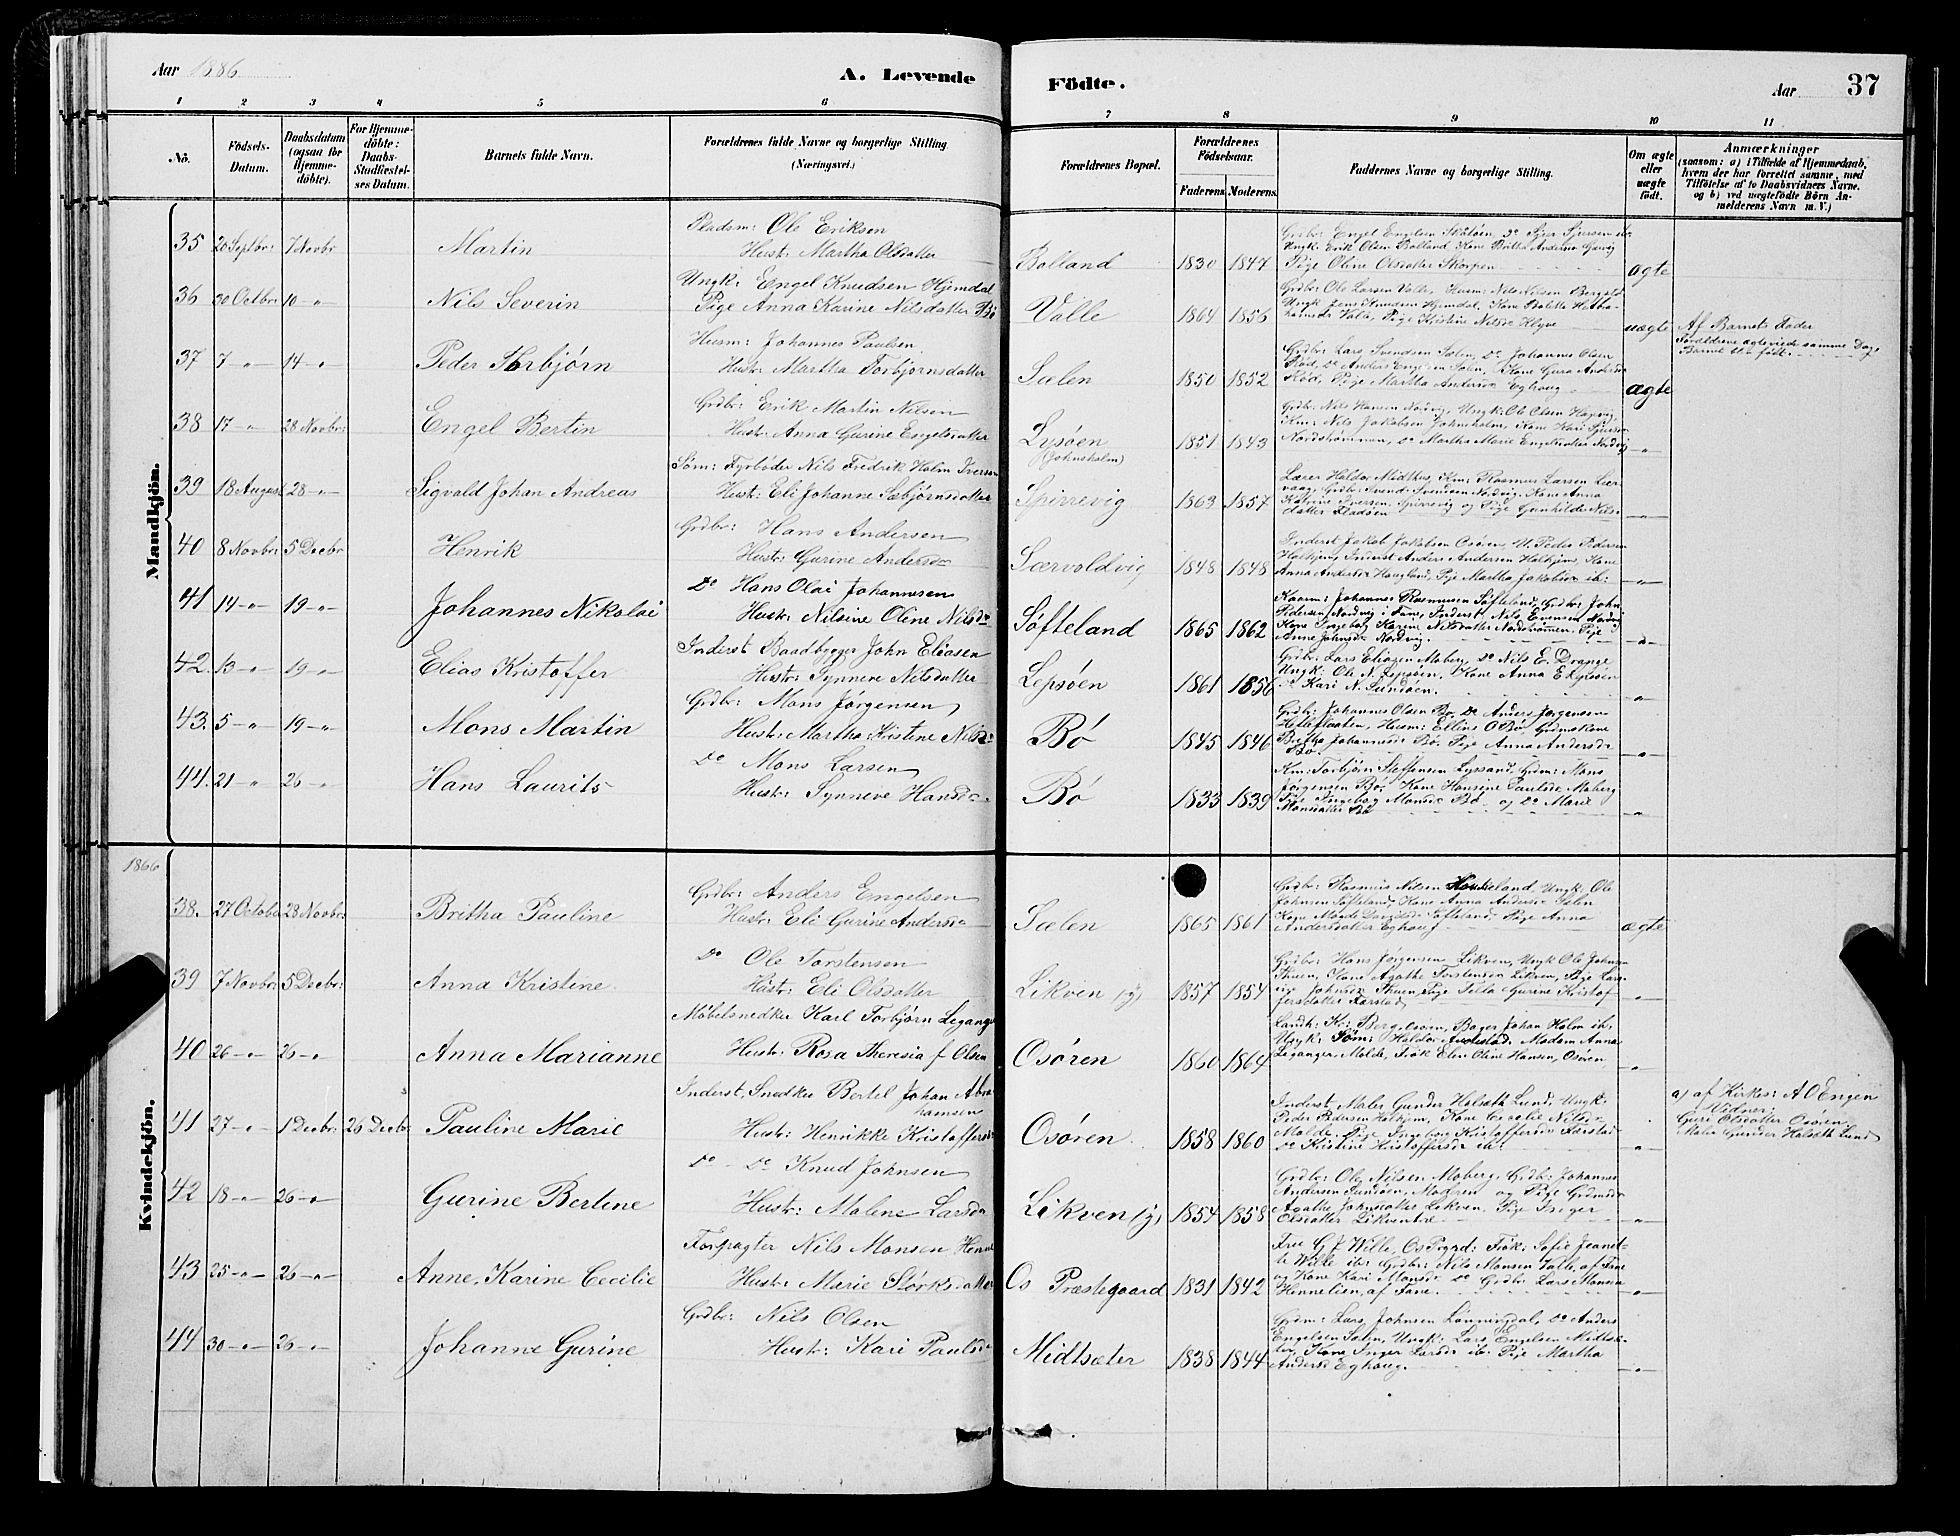 Aar 1886
A. Levende
Födte.
Aar
37
1 2 3 4 5 6 7 8 9 10 11
No.
Födsels-Datum.
Daabsdatum (ogsaa for Hjemme-döbte).
For Hjemme-döbte: Daabs-Stadfæstel-ses Datum.
Barnets fulde Navn.
Forældrenes fulde Navne og borgerlige Stilling (Næringsvei.)
Forældrenes Bopæl.
Forældrenes Födselsaar.
Faderens. Moderens.
Faddernes Navne og borgerlige Stilling.
Om ægte eller uægte født.
Anmærkninger
(saasom: a) i Tilfælde af Hjemmedaab, hvem der har forrettet samme, med Tilföielse af to Daabsvidners Navne, og b) ved uægtefödte Börn An-melderens Navn m. V.)
Mandkjön.
35 20 Septbr: 7 Novbr Martin
Pladsm: Ole Eriksen
Hustr: Martha Olsdatter
Bolland 1830 1847
Pige Oline Olsdatter Skorpen
ægte
36 30 Octbr: 10 -"- Nils Severin
Ungk: Engel Knudsen Hjemdal
Pige Anna Karine Nilsdatter Bö
Valle 1864 1856
Grdbr: Ole Larsen Valle, Husm: Nils Nilsen
Ungk Jens Knudsen Hjemdal, Kone
Valle, Pige Kristine Nilsdr
uægte
Af Barnets Fader
Forældrene ægteviede samme Dag
Barnet blev født.
37 7 -"- 14 -"- Peder Torbjörn
Husm: Johannes Paulsen
Hustr: Martha Torbjörnsdatter
Sælen 1850 1852
Grdbr: Lars Svendsen Sælen, Do Johannes Olsen
Röd, Do Anders Engelsen Sælen, Kone Guro Andersdr
Röd, Pige Martha Andersdr Eghoug
ægte
38 17 -"- 28 Novbr: Engel Bertin
Grdbr: Erik Martin Nilsen
Hustr: Anna Gurine Engelsdatter
Lysöen
(Johnsholm)
1851 1843
Grdbr: Nils Hansen Nordvig, Ungk: Ole Olsen
Km: Nils Jakobsen Johnsholm, Kone Kari
Nordströmmen, Do Martha Marie Engelsdatter Nordvig
-"-
39 18 August 28 -"- Sigvald Johan Andreas
Söm: Fyrböder Nils Fredrik Holm Iversen
Hustr: Eli Johanne Sæbjörnsdatter
Spirrevig 1863 1857
Lærer Haldor Midthus, Km: Rasmus Larsen
Grdbr: Svend Svendsen Nordvig, Kone Anna
Katrine Iversen Spirrevig og Pige Gunhilde Nils-
datter Fladöen
-"-
40 8 Novbr: 5 Decbr Henrik
Grdbr: Hans Andersen
Hustr: Gurine Andersdr
Særvoldvig 1848 1848
Inderst Jakob Jakobsen Osören, U. Peder Pedersen
Halhjem, Inderst Anders Andersen Halhjem, Kone
Anna Andersdr Haugland, Pige Martha Jakobsdr ib:
-"-
41 14 -"- 19 -"- Johannes Nikolai
Do Hans Olai Johannesen
Hustr: Nilsine Oline Nilsdr
Söfteland 1865 1862
Kaarm: Johannes Rasmussen Söfteland, Grdbr: John
Pedersen Nordvig i Fane, Inderst Nils Evensen Nordvig
Kone Ingeborg Karine Nilsdatter Nordströmmen, Pige
Anne Johnsdr Nordvig.
-"-
42. 13 -"- 19 -"- Elias Kristoffer
Inderst Baadbygger John Eliasen
Hustr: Synneve Nilsdatter
Lepsöen 1861 1856
Grdbr: Lars Eliasen Moberg, Do Nils E. Drange
Ungk: Ole N. Lepsöen, Kone Anna E. Lepsöen
Kari N. Sundöen.
-"-
43. 5 -"- 19 -"- Mons Martin
Grdbr: Mons Jörgensen
Hustr: Martha Kristene Nilsdr
Bö 1845 1846
Grdbr: Johannes Olsen Bö, Do Anders Jörgensen
Helleflaaten, Husm: Elling O Bö, Grdmdskone
Britha Johannesdr Bö, Pige Anna Andersdr
Bö.
-"-
44. 21 -"- 26 -"- Hans Laurits
Do Mons Larsen
Hustr: Synneve Hansdr
Bö 1833 1839
Km: Torbjörn Steffensen Lyssand, Grdm: Mons
Jörgensen Bö, Kone Hansine Paulsdr Moberg
Pige Ingeborg Monsdr Bö og Do Marie
Monsdatter Bö
-"-
1866
Kvindekjön.
38. 27 October 28 Novbr: Britha Pauline
Grdbr: Anders Engelsen
Hustr: Eli Gurine Andersdr
Sælen 1865 1861
Grdbr: Rasmus Nilsen Haukeland, Ungk: Ole
Johnsen Söfteland, Kone Anna Andersdr Sælen
Söfteland, Pige Anna
Andersdatter Eghoug
ægte
39 7 Novbr: 5 Decbr: Anna Kristine
Do Ole Torstensen
Hustr: Eli Olsdatter
Likven (y) 1857 1854
Grdbr: Hans Jörgensen Likven, Ungk Ole Johnsen
Skuen, Kone Agathe Torstensdr Likven, Pige Lars-
ine Johnsdr Skuen, Pige Sella Gurine Kristof-
fersdatter Færstad
-"-
40 26 -"- 26 -"- Anna Marianne
Möbelsnedker Karl Torbjörn Leganger
Hustr: Rosa Theresia f Olsen
Osören 1860 1864
Landh: Kr: Berg, Osören, Bager Johan Holm ib:
Ungk: Söm: Haldor Aadestad, Madam Anna
Leganger, Molde, Frök Elen Oline Hansen, Osören
-"-
41 27 -"- 1 Decbr: 26 Decbr: Pauline Marie
Inderst, Snedker Bertel Johan Abra
hamsen
Hustr: Henrikke Kristoffersdr
Osören. 1858 1860
Inderst Maler Gunder Halsæth Lund, Ungk:
Peder Pedersen Halhjem, Kone Cecilie Nilsdr
Molde, Pige Ingeborg Kristoffersdr Færstad
Do Kristine Kristoffersdr ib:
-"-
a) af Kirkes: A O Engen
Vidner:
Guri Olsdatter Osören,
Maler Gunder Halsæth Lund
42 18 -"- 26 -"- Gurine Bertine
Do - Do Knud Johnsen
Hustr: Malene Larsdr
Likven (y) 1854 1858
Grdbr: Ole Nilsen Moberg, Grdbr: Johannes
Andersen Sundöen, og Pige
Agathe Johnsdatter Likven, Pige Inger
Olsdatter Likven
-"-
43 25 -"- 26 -"- Anne, Karine Cecilie
Forpagter Nils Monsen Henne
Hustr: Marie Störksdatter
Os Præstegaard 1831 1842
Fru G. f Wille, Os Prgrd: Frök: Sofie Jeanet-
te Wille ib: Grdbr: Nils Monsen Valle, af Fane
og Kone Kari Monsdr Do Grdbr Lars Monsen
Hennelien, af Fane.
-"-
44 30 -"- 26 -"- Johanne Gurine
Grdbr: Nils Olsen
Hustr: Kari Paulsdr
Midtsæter 1838 1844
Grdm: Lars Johnsen Lönningdal, Do Anders
Engelsen Sælen, Ungk: Lars Engelsen Midtsæ-
ter, Kone Inger Larsdr ib: Pige Martha
Andersdr Eghoug.
-"-